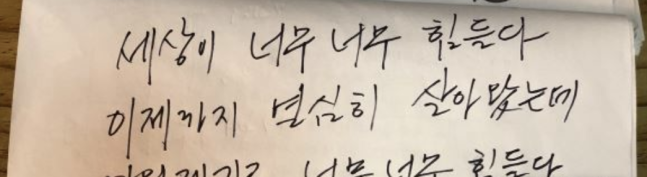 세상이 너무 너무 힘들다
이제까지 열심히 살아왔는데
너무 너무 힘들다